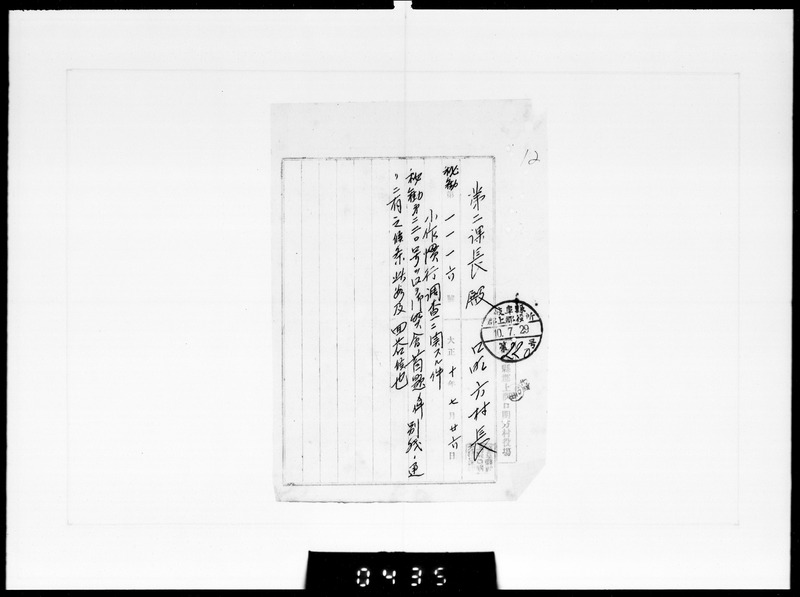 12
秘勧第一一一六號
大正十年七月廿六日
口明方村長
第二課長殿
小作慣行調査ニ関スル件
秘勧第二二〇号ヲ以テ御照会首題ノ件別紙ノ通
リニ有之候条此段及回答候也
岐阜縣
郡上郡役所
10.7.29
第220号
0435